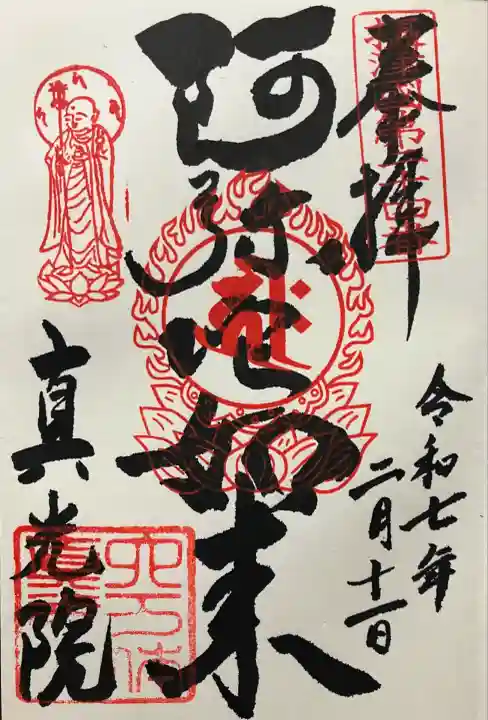 奉拝
阿弥陀如来
令和七年
二月十一日
真光院
六万体